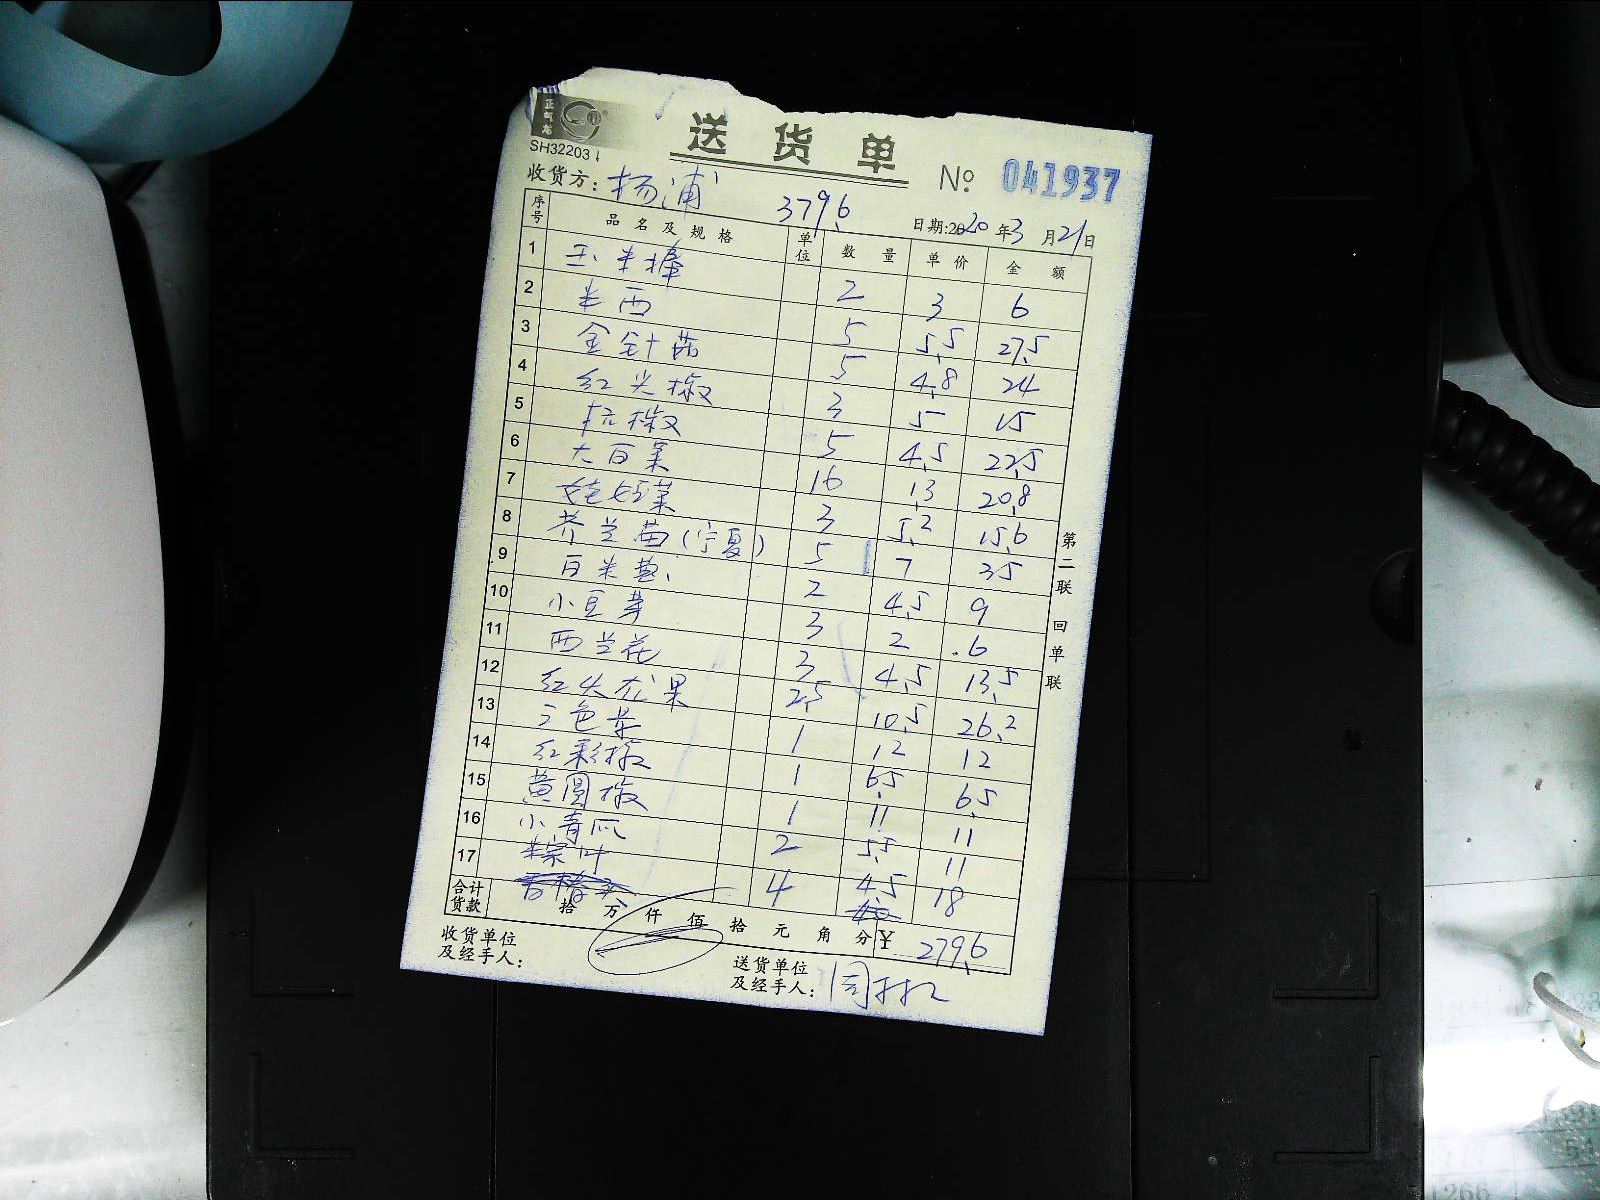 正气龙
SH32203
送货单
№ 041937
收货方: 杨浦 379.6 日期:2020年3月21日
序号 品名及规格 单位 数量 单价 金额
1 玉米棒 2 3 6
2 米西 5 5.5 27.5
3 金针菇 5 4.8 24
4 红尖椒 3 5 15
5 杭椒 5 4.5 22.5
6 大百菜 16 1.3 20.8
7 娃娃菜 3 5.2 15.6
8 芥兰苗(宁夏) 5 7 35
9 百米葱 2 4.5 9
10 小豆芽 3 2 6
11 西兰花 3 4.5 13.5
12 红火龙果 2.5 10.5 26.2
13 三色芽 1 12 12
14 红彩椒 1 6.5 6.5
15 黄圆椒 1 11 11
16 小青瓜 2 5.5 11
17 粽叶 4 4.5 18
合计货款 拾万仟佰拾元角分 ¥ 279.6
收货单位及经手人:
送货单位及经手人:
第二联 回单联